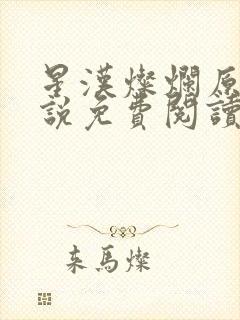 星漢燦爛原
說免費閱讀
来馬燦